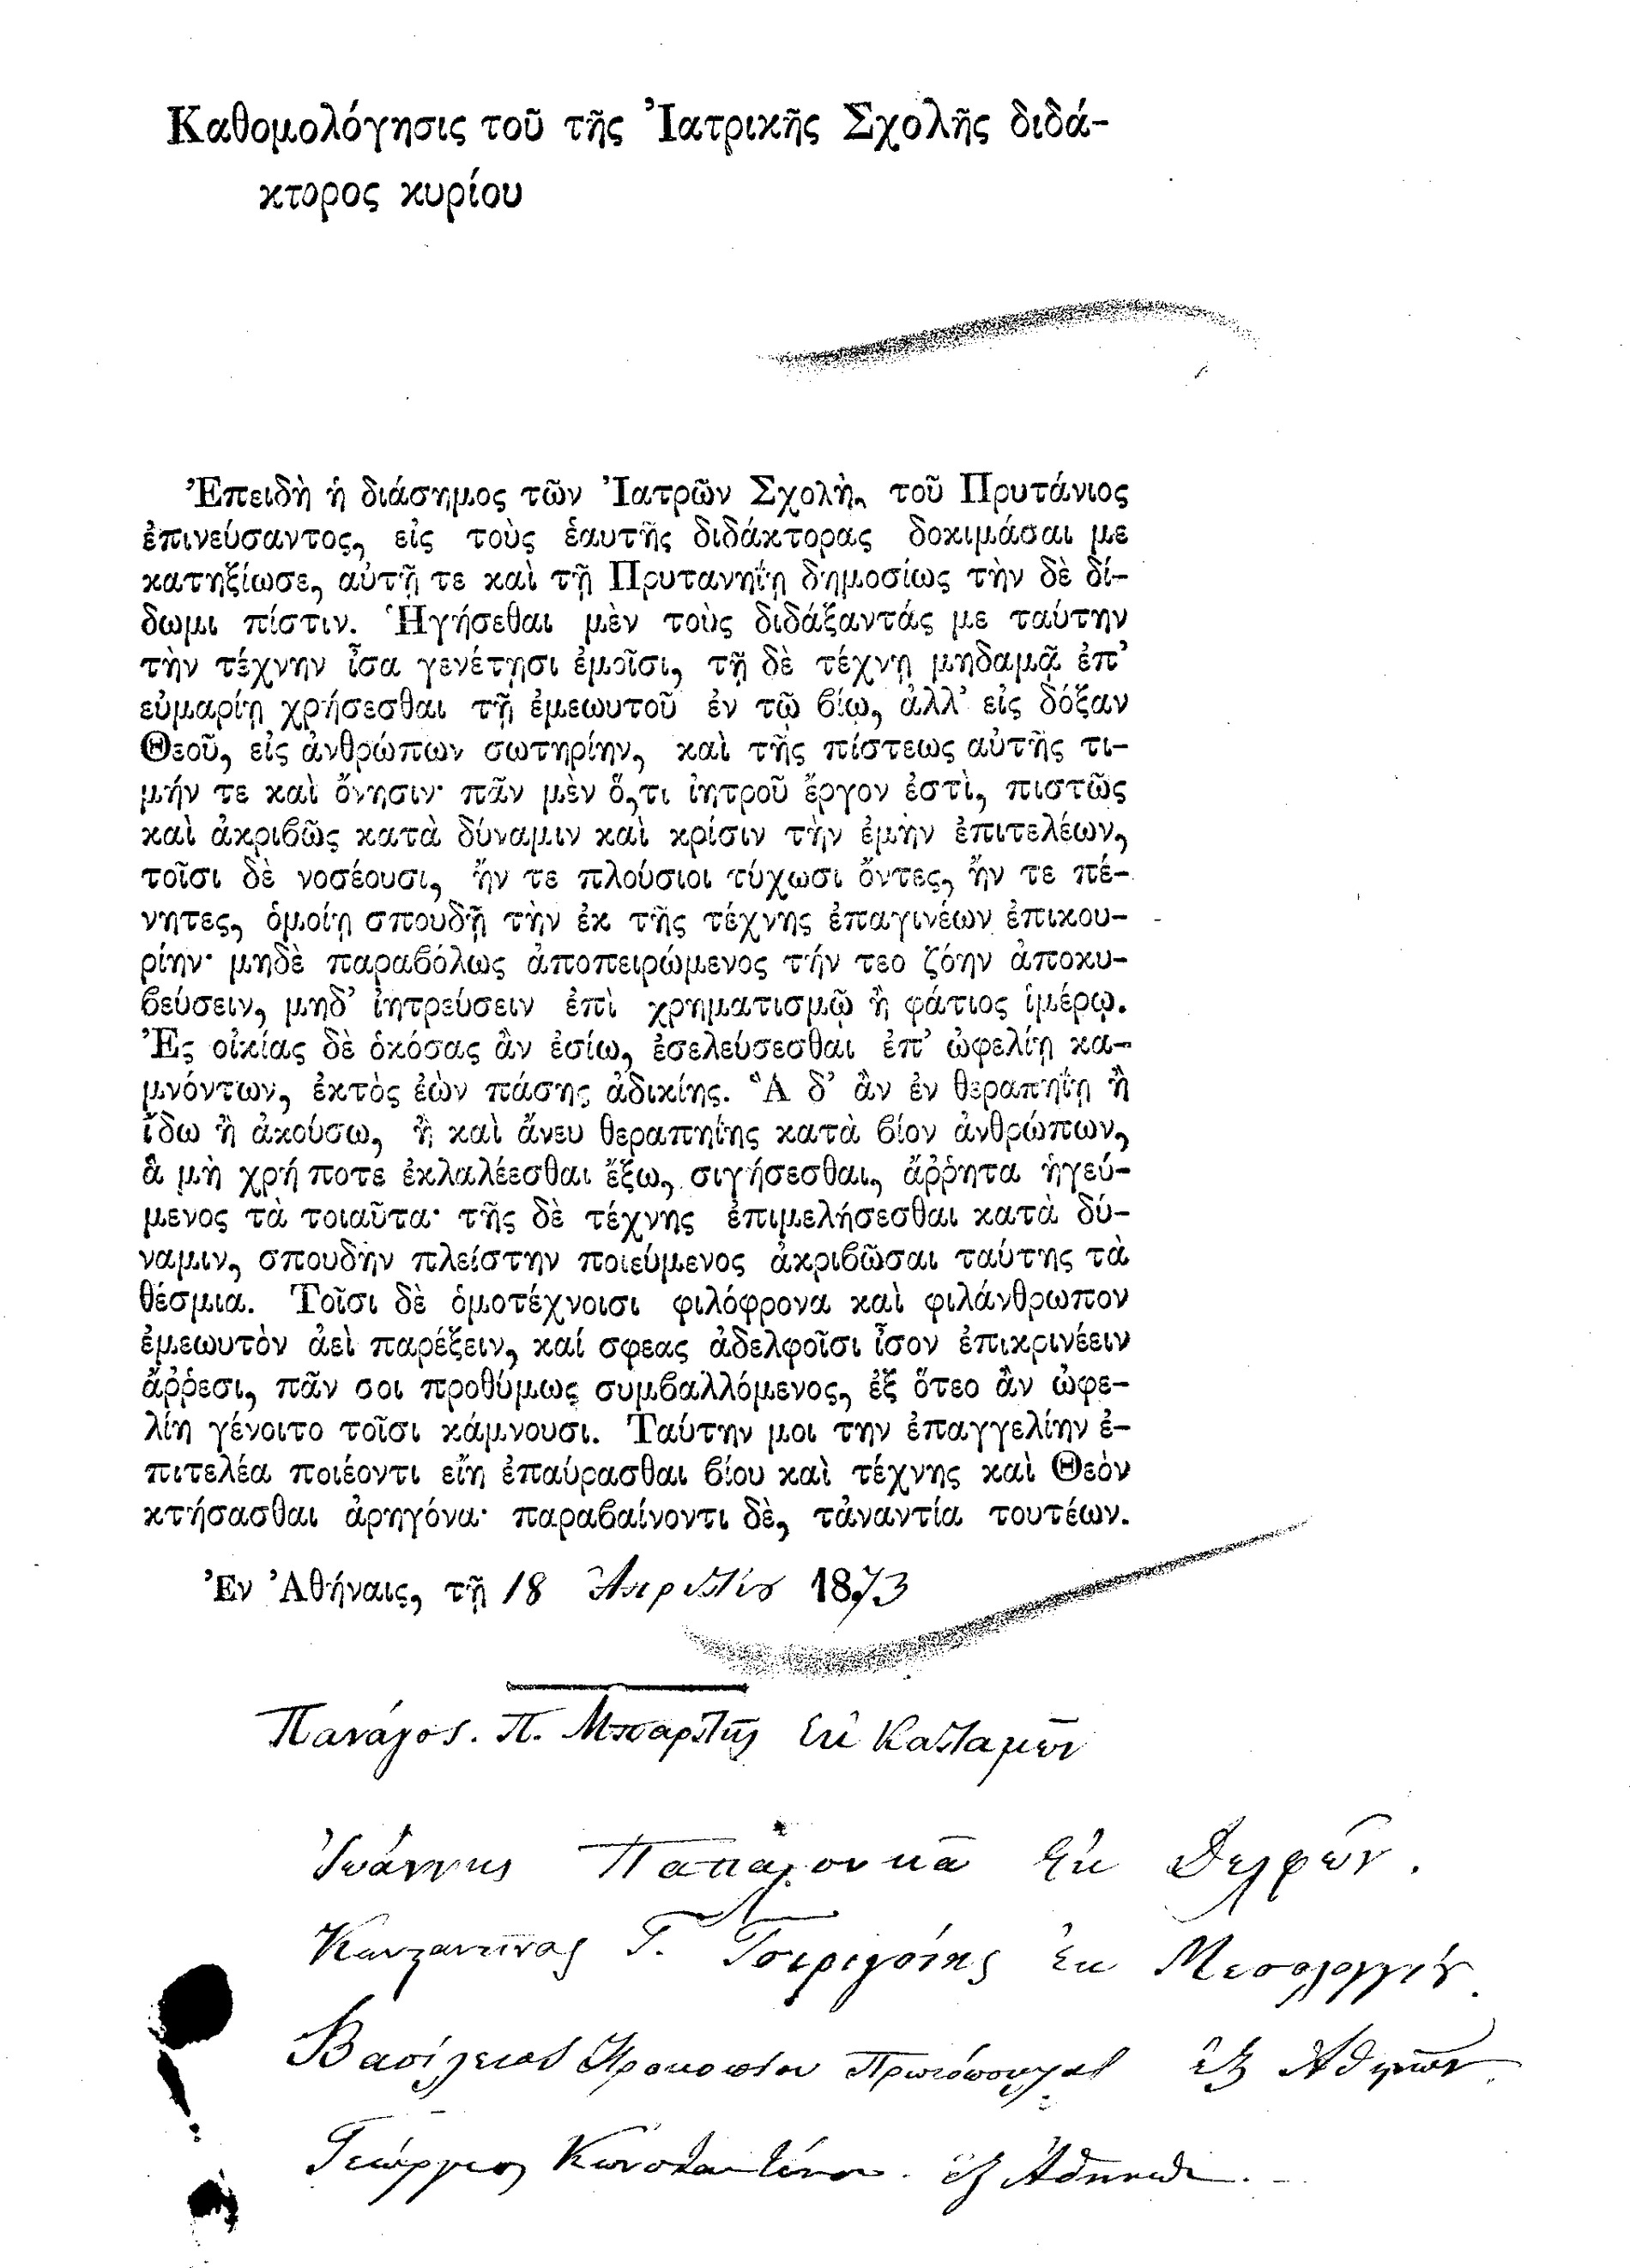 Καθομολόγησις τοῦ τῆς Ἰατρικῆς Σχολῆς διδά-
κτορος κυρίου
Ἐπειδὴ ἡ διάσημος τῶν Ἰατρῶν Σχολὴ, τοῦ Πρυτάνιος
ἐπινεύσαντος, εἰς τοὺς ἑαυτῆς διδάκτορας δοκιμάσαι με
κατηξίωσε, αὐτῇ τε καὶ τῇ Πρυτανηΐῃ δημοσίως τὴν δὲ δί-
δωμι πίστιν. Ἡγήσεθαι μὲν τοὺς διδάξαντάς με ταύτην
τὴν τέχνην ἶσα γενέτῃσι ἐμοῖσι, τῇ δὲ τέχνῃ μηδαμᾷ ἐπ’
εὐμαρίῃ χρήσεσθαι τῇ ἐμεωυτοῦ ἐν τῷ βίῳ, ἀλλ’ εἰς δόξαν
Θεοῦ, εἰς ἀνθρώπων σωτηρίην, καὶ τῆς πίστεως αὐτῆς τι-
μήν τε καὶ ὄνησιν· πᾶν μὲν ὅ,τι ἰητροῦ ἔργον ἐστὶ, πιστῶς
καὶ ἀκριβῶς κατὰ δύναμιν καὶ κρίσιν τὴν ἐμὴν ἐπιτελέων,
τοῖσι δὲ νοσέουσι, ἤν τε πλούσιοι τύχωσι ὄντες, ἤν τε πέ-
νητες, ὁμοίῃ σπουδῇ τὴν ἐκ τῆς τέχνης ἐπαγινέων ἐπικου-
ρίην· μηδὲ παραβόλως ἀποπειρώμενος τήν τεο ζόην ἀποκυ-
βεύσειν, μηδ’ ἰητρεύσειν ἐπὶ χρηματισμῷ ἢ φάτιος ἱμέρῳ.
Ἐς οἰκίας δὲ ὁκόσας ἂν ἐσίω, ἐσελεύσεσθαι ἐπ’ ὠφελίῃ κα-
μνόντων, ἐκτὸς ἐὼν πάσης ἀδικίης. Ἃ δ’ ἂν ἐν θεραπηΐῃ ἢ
ἴδω ἢ ἀκούσω, ἢ καὶ ἄνευ θεραπηΐης κατὰ βίον ἀνθρώπων,
ἃ μὴ χρή ποτε ἐκλαλέεσθαι ἔξω, σιγήσεσθαι, ἄῤῥητα ἡγεύ-
μενος τὰ τοιαῦτα· τῆς δὲ τέχνης ἐπιμελήσεσθαι κατὰ δύ-
ναμιν, σπουδὴν πλείστην ποιεύμενος ἀκριβῶσαι ταύτης τὰ
θέσμια. Τοῖσι δὲ ὁμοτέχνοισι φιλόφρονα καὶ φιλάνθρωπον
ἐμεωυτὸν ἀεὶ παρέξειν, καί σφεας ἀδελφοῖσι ἶσον ἐπικρινέειν
ἄῤῥεσι, πᾶν σοι προθύμως συμβαλλόμενος, ἐξ ὅτεο ἂν ὠφε-
λίη γένοιτο τοῖσι κάμνουσι. Ταύτην μοι την ἐπαγγελίην ἐ-
πιτελέα ποιέοντι εἴη ἐπαύρασθαι βίου καὶ τέχνης καὶ Θεὸν
κτήσασθαι ἀρηγόνα· παραβαίνοντι δὲ, τἀναντία τουτέων.
Ἐν Ἀθήναις, τῇ 18 Ἀπριλίου 1873
Πανάγος. Π. ἐκ Καλαμῶν
Ἰωάννης Παπαλουκᾶ ἐκ Δελφῶν.
Κωνσταντῖνος Γ. ἐκ Μεσολογγίου.
Βασίλειος Προκοπίου Πρωτόπουλος ἐξ Ἀθηνῶν.
Γεώργιος Κωνσταντίνου. ἐξ Ἀθηνῶν.